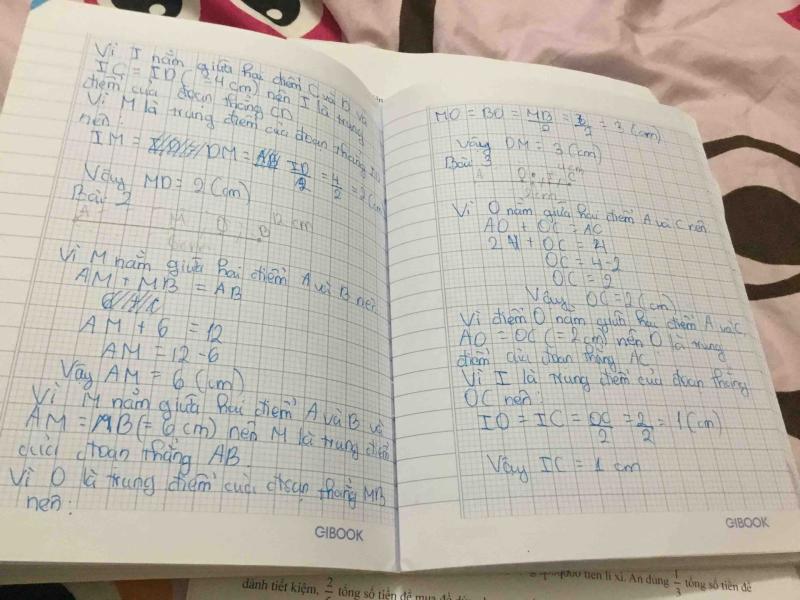 Vì I nằm giữa hai điểm C và D và
IC = ID (=4cm) nên I là trung
điểm của đoạn thẳng CD
Vì M là trung điểm của đoạn thẳng ID
nên:
IM = DM = ID/2 = 4/2 = 2 (cm)
Vậy MD = 2 (cm)
Bài 2
A M O B 12 cm
6cm
Vì M nằm giữa hai điểm A và B nên
AM + MB = AB
AM + 6 = 12
AM = 12 - 6
Vậy AM = 6 (cm)
Vì M nằm giữa hai điểm A và B và
AM = MB (= 6 cm) nên M là trung điểm
của đoạn thẳng AB.
Vì O là trung điểm của đoạn thẳng MB
nên:
GIBOOK
MO = BO = MB/2 = 6/2 = 3 (cm)
Vậy OM = 3 (cm)
Bài 3
A O I C
2cm
Vì O nằm giữa hai điểm A và C nên
AO + OC = AC
2 + OC = 4
OC = 4-2
OC = 2
Vậy OC = 2 (cm)
Vì điểm O nằm giữa hai điểm A và C,
AO = OC (= 2 cm) nên O là trung
điểm của đoạn thẳng AC.
Vì I là trung điểm của đoạn thẳng
OC nên:
IO = IC = OC/2 = 2/2 = 1 (cm)
Vậy IC = 1 cm
GIBOOK
tiền lì xì. An dùng 1/3 tổng số tiền để
dành tiết kiệm, tổng số tiền để mua